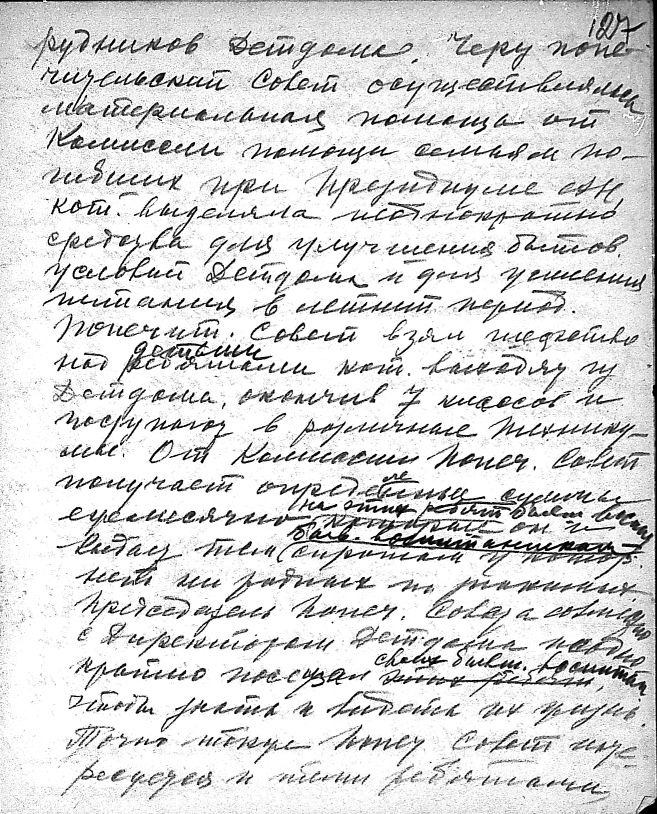 127
рудников Детдома. Через попе-
чительский Совет осуществлялась
материальная помощь от
Комиссии помощи семьям по-
гибших при Президиуме АН,
кот. выделяла неоднократно
средства для улучшения бытов.
условий Детдома и для усиления
питания в летний период.
Попечит. Совет взял шефство
над ребятами детьми кот. выходят из
Детдома, окончив 7 классов и
поступают в различные технику-
мы. От Комиссии Попеч. Совет
получает определенные суммы
ежемесячно на этих ребят бывш. воспит
которые он и
выдает тем бывш. воспитанникам
сиротам у котор.
нет ни родных ни знакомых
Председатель Попеч. Совета совместно
с Директором Детдома неодно-
кратно посещал этих ребят, своих бывш. воспитан
чтобы знать и видеть их жизнь.
Точно также Попеч Совет инте-
ресуется и теми ребятами,